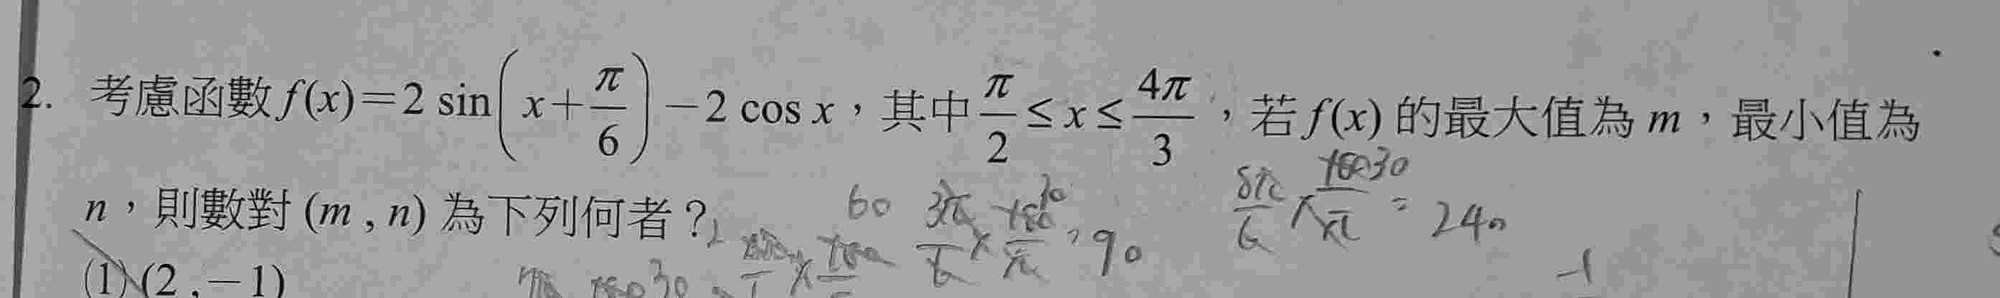 2. 考慮函數 f(x)=2 sin(x+π/6)−2 cos x，其中 π/2 ≤ x ≤ 4π/3，若 f(x) 的最大值為 m，最小值為
n，則數對 (m , n) 為下列何者？
60 3π/6 × 180/π 30 , 90
8π/6 × 180/π 30 = 240
(1) (2 , −1)
180 30
-1